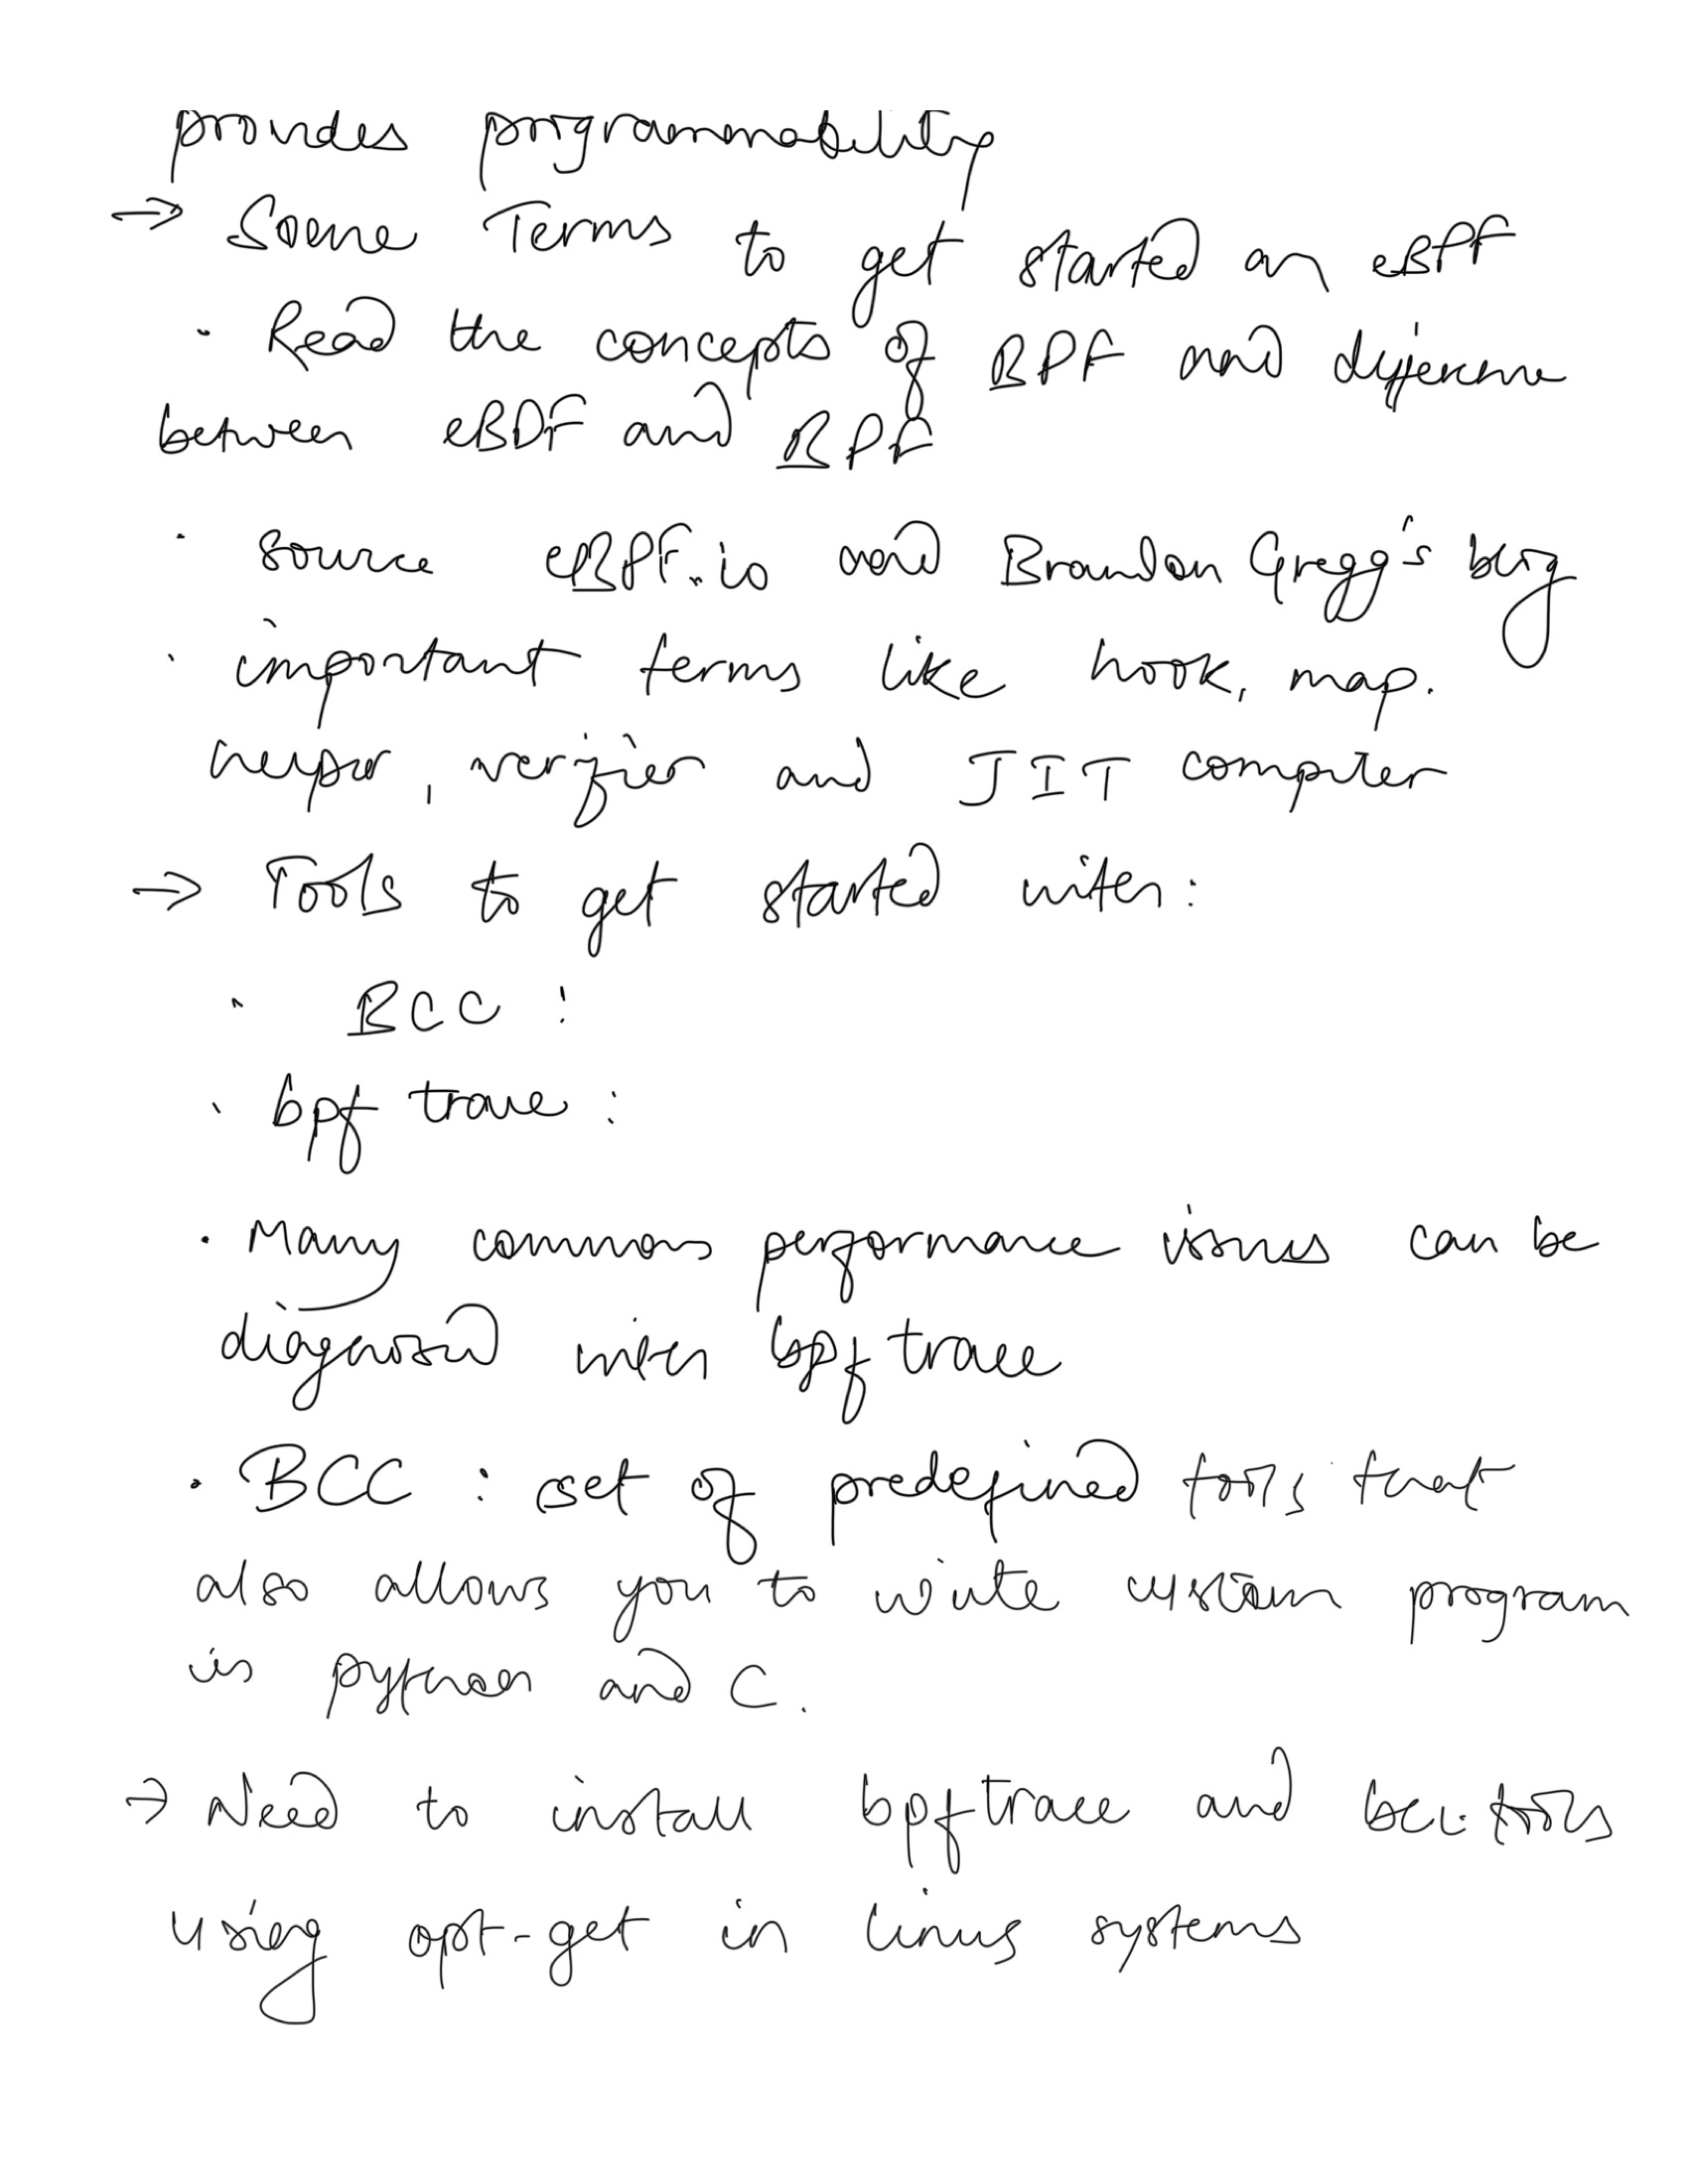 provides programmability
→ Some Terms to get started on eBPF
· Read the concepts of BPF and difference
between eBPF and BPF
· source eBPF.io and Brandon Gregg's blog
· important terms like hook, map.
helper, verifier and JIT compiler
→ Tools to get started with:
· BCC :
· bpf trace :
· Many common performance issues can be
diagnosed with bpf trace
· BCC : set of predefined tools that
also allows you to write custom program
in python and C.
→ Need to install bpftrace and bcc-tools
using apt-get in linux systems